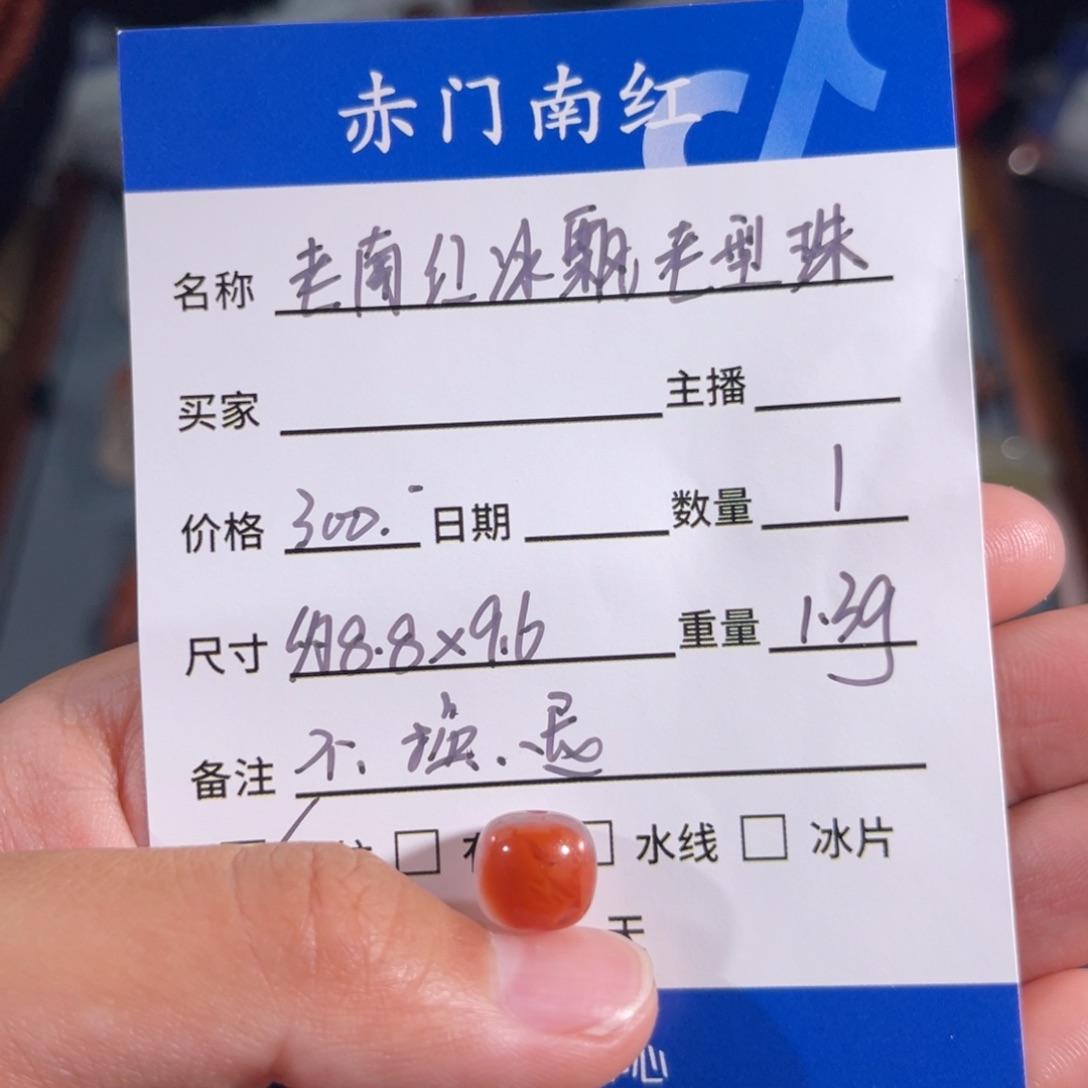 赤门南红
名称 老南红冰飘老型珠
买家 主播
价格 300.- 日期 数量 1
尺寸 约8.8×9.6 重量 1.3g
备注 不.换.退
水线 冰片
天
心